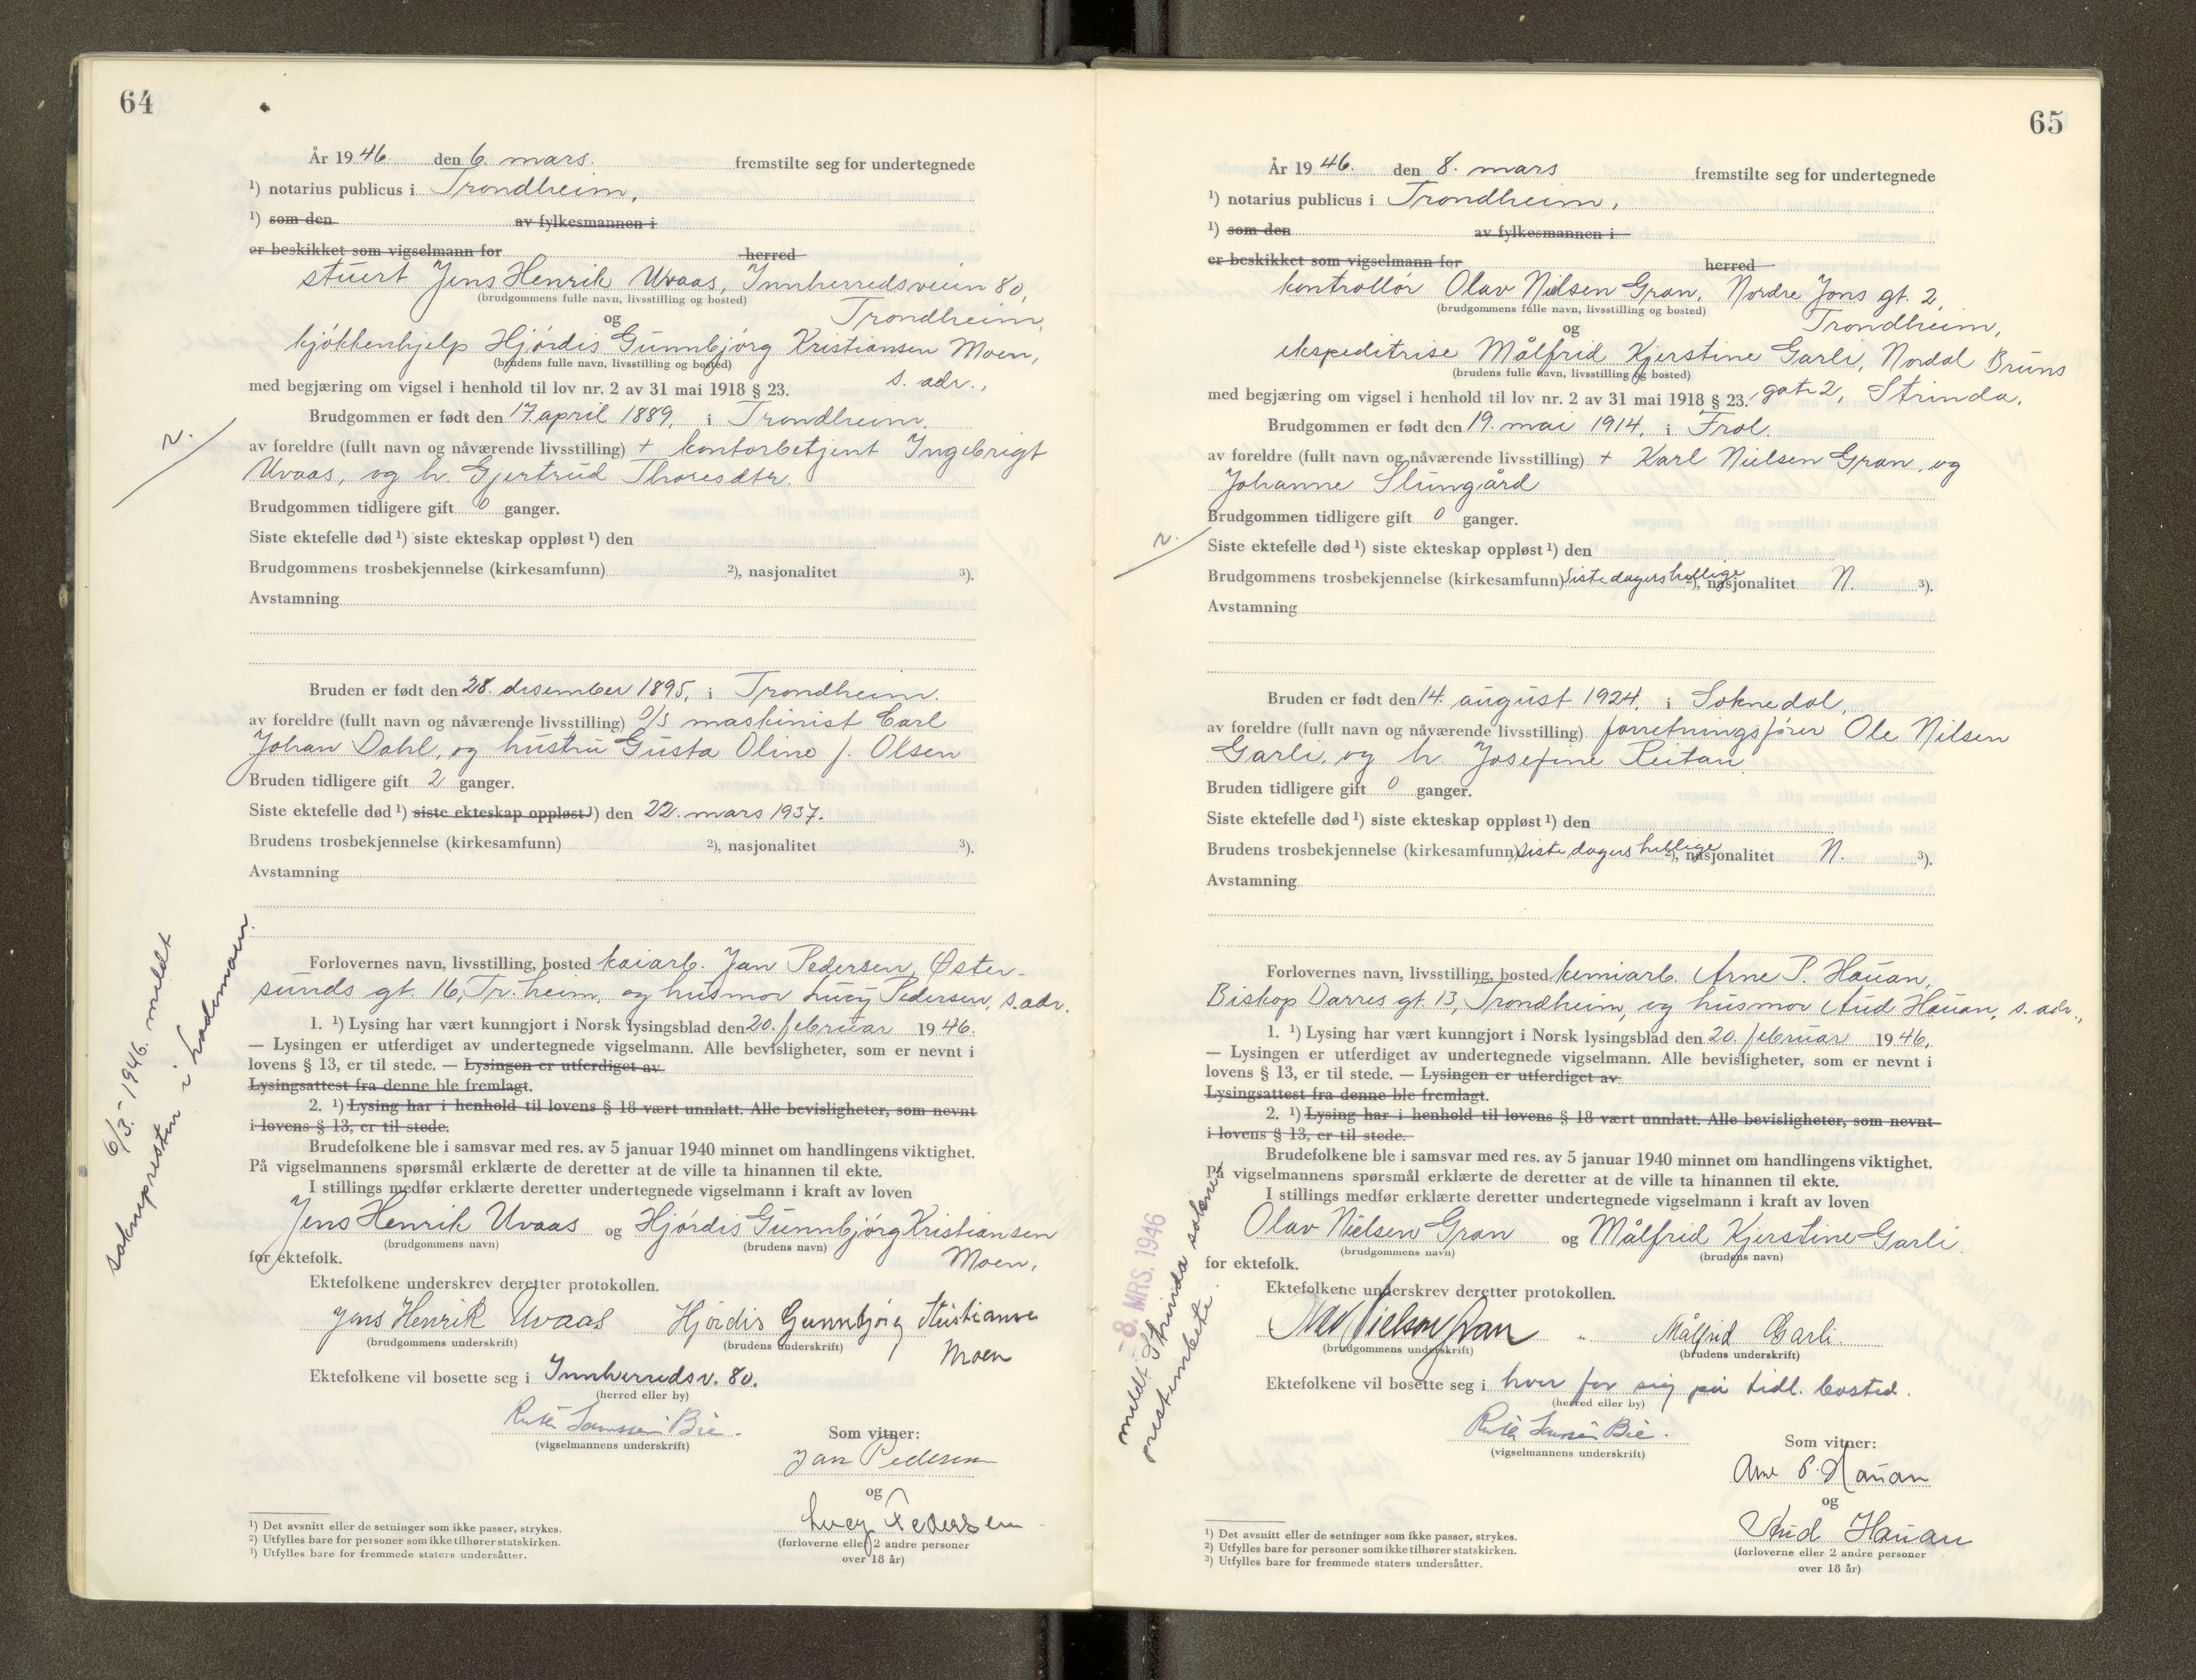 64
År 1946. den 6. mars. fremstilte seg for undertegnede
¹) notarius publicus i Trondheim,
¹) som den av fylkesmannen i
er beskikket som vigselmann for herred
stuert Jens Henrik Uvaas, Innherredsveien 80,
(brudgommens fulle navn, livsstilling og bosted)
og Trondheim,
kjøkkenhjelp Hjørdis Gunnbjørg Kristiansen Moen,
(brudens fulle navn, livsstilling og bosted)
med begjæring om vigsel i henhold til lov nr. 2 av 31 mai 1918 § 23. s. adr.,
Brudgommen er født den 17. april 1889, i Trondheim.
av foreldre (fullt navn og nåværende livsstilling) + kontorbetjent Ingebrigt
Uvaas, og h. Gjertrud Thoresdtr.
Brudgommen tidligere gift 0 ganger.
Siste ektefelle død ¹) siste ekteskap oppløst ¹) den
Brudgommens trosbekjennelse (kirkesamfunn) ²), nasjonalitet ³).
Avstamning
Bruden er født den 28. desember 1895, i Trondheim.
av foreldre (fullt navn og nåværende livsstilling) d/s maskinist Carl
Johan Dahl, og hustru Gusta Oline f. Olsen
Bruden tidligere gift 2 ganger.
Siste ektefelle død ¹) siste ekteskap oppløst ¹) den 22. mars 1937.
Brudens trosbekjennelse (kirkesamfunn) ²), nasjonalitet ³).
Avstamning
Forlovernes navn, livsstilling, bosted kaiarb. Jan Pedersen, Øster-
sunds gt. 16, Tr.heim, og husmor Lucy Pedersen, s. adr.
1. ¹) Lysing har vært kunngjort i Norsk lysingsblad den 20. februar 1946.
— Lysingen er utferdiget av undertegnede vigselmann. Alle bevisligheter, som er nevnt i
lovens § 13, er til stede. — Lysingen er utferdiget av
Lysingsattest fra denne ble fremlagt.
2. ¹) Lysing har i henhold til lovens § 18 vært unnlatt. Alle bevisligheter, som nevnt
i lovens § 13, er til stede.
Brudefolkene ble i samsvar med res. av 5 januar 1940 minnet om handlingens viktighet.
På vigselmannens spørsmål erklærte de deretter at de ville ta hinannen til ekte.
I stillings medfør erklærte deretter undertegnede vigselmann i kraft av loven
Jens Henrik Uvaas og Hjørdis Gunnbjørg Kristiansen
(brudgommens navn) (brudens navn)
for ektefolk. Moen,
Ektefolkene underskrev deretter protokollen.
Jens Henrik Uvaas Hjördis Gunnbjörg Kristianse
(brudgommens underskrift) (brudens underskrift)
Moen
Ektefolkene vil bosette seg i Innherredsv. 80.
(herred eller by)
(vigselmannens underskrift)
Som vitner:
Jan Pedersen
og
Lucy Pedersen
(forloverne eller 2 andre personer
over 18 år)
¹) Det avsnitt eller de setninger som ikke passer, strykes.
²) Utfylles bare for personer som ikke tilhører statskirken.
³) Utfylles bare for fremmede staters undersåtter.
6/3-1946. meldt
sokneprester i Lademoen.
65
År 1946. den 8. mars fremstilte seg for undertegnede
¹) notarius publicus i Trondheim,
¹) som den av fylkesmannen i
er beskikket som vigselmann for herred
kontrollør Olav Nielsen Gran, Nordre Jons gt. 2,
(brudgommens fulle navn, livsstilling og bosted)
og Trondheim,
ekspeditrise Målfrid Kjerstine Garli, Nordal Bruns
(brudens fulle navn, livsstilling og bosted)
med begjæring om vigsel i henhold til lov nr. 2 av 31 mai 1918 § 23. gate 2, Strinda.
Brudgommen er født den 19. mai 1914, i Frol.
av foreldre (fullt navn og nåværende livsstilling) + Karl Nielsen Gran, og
Johanne Slungård
Brudgommen tidligere gift 0 ganger.
Siste ektefelle død ¹) siste ekteskap oppløst ¹) den
Brudgommens trosbekjennelse (kirkesamfunn) Siste dagers hellige ²), nasjonalitet N. ³).
Avstamning
Bruden er født den 14. august 1924, i Soknedal,
av foreldre (fullt navn og nåværende livsstilling) forretningsfører Ole Nilsen
Garli, og h. Josefine Reitan
Bruden tidligere gift 0 ganger.
Siste ektefelle død ¹) siste ekteskap oppløst ¹) den
Brudens trosbekjennelse (kirkesamfunn) Siste dagers hellige ²), nasjonalitet N. ³).
Avstamning
Forlovernes navn, livsstilling, bosted kemiarb. Arne P. Hauan,
Biskop Darres gt. 13, Trondheim, og husmor Aud Hauan, s. adr.,
1. ¹) Lysing har vært kunngjort i Norsk lysingsblad den 20. februar 1946.
— Lysingen er utferdiget av undertegnede vigselmann. Alle bevisligheter, som er nevnt i
lovens § 13, er til stede. — Lysingen er utferdiget av
Lysingsattest fra denne ble fremlagt.
2. ¹) Lysing har i henhold til lovens § 18 vært unnlatt. Alle bevisligheter, som nevnt
i lovens § 13, er til stede.
Brudefolkene ble i samsvar med res. av 5 januar 1940 minnet om handlingens viktighet.
På vigselmannens spørsmål erklærte de deretter at de ville ta hinannen til ekte.
I stillings medfør erklærte deretter undertegnede vigselmann i kraft av loven
Olav Nielsen Gran og Målfrid Kjerstine Garli
(brudgommens navn) (brudens navn)
for ektefolk.
Ektefolkene underskrev deretter protokollen.
Olav Nielsen Gran Målfrid Garli.
(brudgommens underskrift) (brudens underskrift)
Ektefolkene vil bosette seg i hver for sig på tidl. bosted.
(herred eller by)
(vigselmannens underskrift)
Som vitner:
Arne P. Hauan
og
Aud Hauan
(forloverne eller 2 andre personer
over 18 år)
¹) Det avsnitt eller de setninger som ikke passer, strykes.
²) Utfylles bare for personer som ikke tilhører statskirken.
³) Utfylles bare for fremmede staters undersåtter.
-8. MRS. 1946
meldt Strinda sokne-
prestembete.